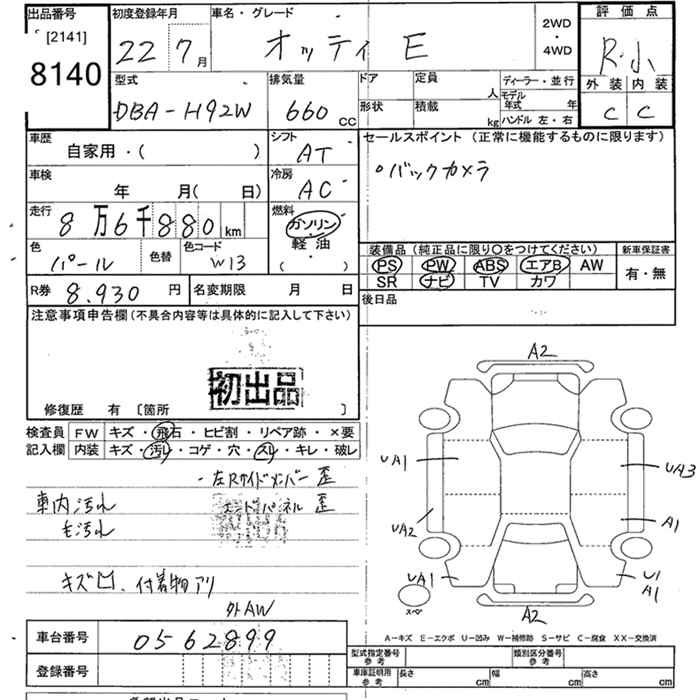 出品番号
[2141]
8140
初度登録年月
22 7月
車名・グレード
オッティ E
2WD
・
4WD
評価点
R・小
外装 内装
C C
型式
DBA-H92W
排気量
660 CC
ドア 定員 人
形状 積載 kg
ディーラー・並行
モデル
年式 年
ハンドル 左・右
車歴
自家用・( )
シフト
AT
セールスポイント (正常に機能するものに限ります)
○バックカメラ
車検
年 月( 日)
冷房
AC
走行
8万6千880km
燃料
ガソリン
・
軽油
( )
色
パール
色替
色コード
W13
装備品 (純正品に限り○をつけてください)
PS PW ABS エアB AW
SR ナビ TV カワ
新車保証書
有・無
R券 8.930 円
名変期限 月 日
後日品
注意事項申告欄(不具合内容等は具体的に記入して下さい)
初出品
修復歴 有 〔箇所 〕
検査員
記入欄
FW キズ・飛石・ヒビ割・リペア跡・×要
内装 キズ・汚レ・コゲ・穴・スレ・キレ・破レ
左Rサイドメンバー歪
車内汚れ エンドパネル歪
毛汚れ
キズ凹、付着物アリ
外AW
A2
UA1
UA3
UA2
A1
UA1
U1
A1
スペア
A2
A-キズ E-エクボ U-凹み W-補修跡 S-サビ C-腐食 XX-交換済
車台番号 0562899
登録番号
型式指定番号
参考
類別区分番号
参考
車庫証明用
参考
長さ cm 幅 cm 高さ cm